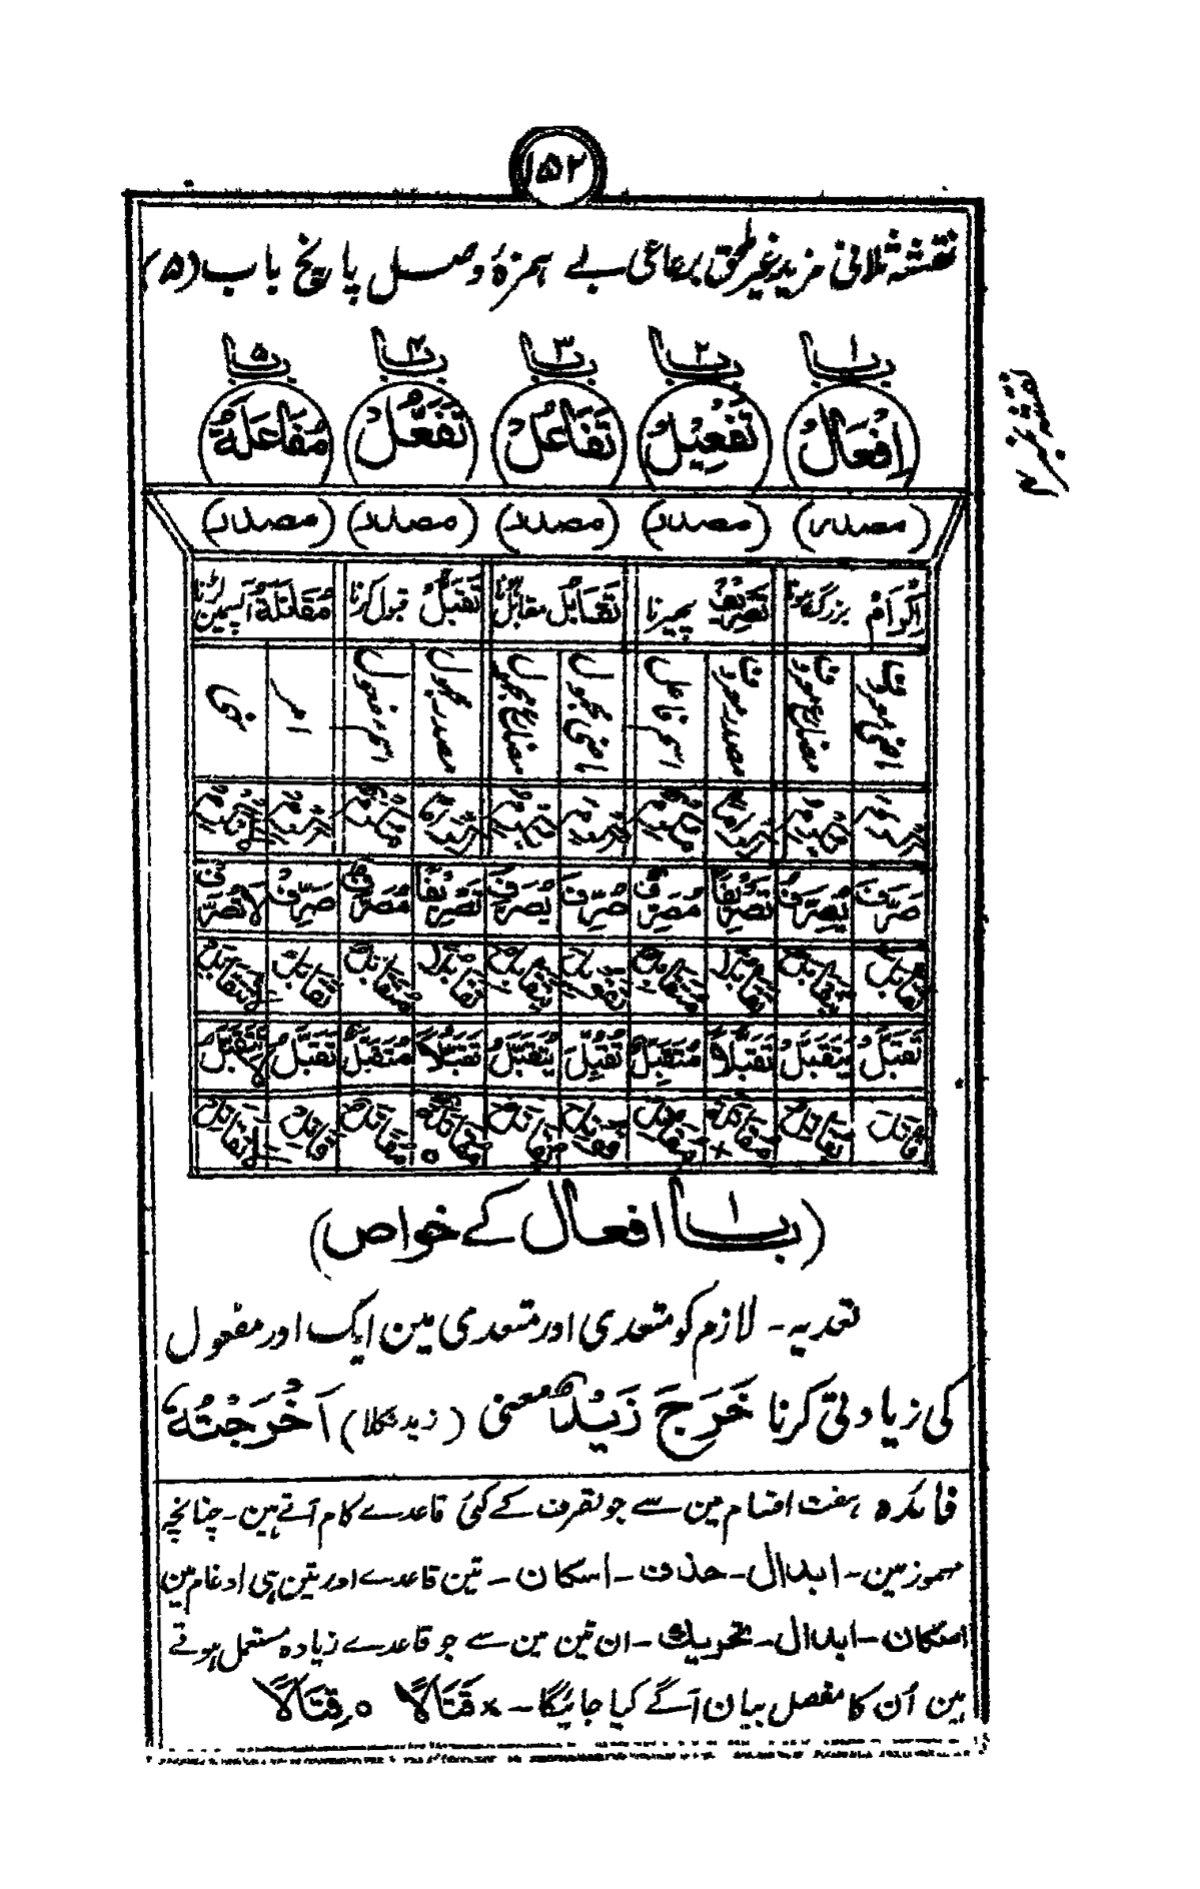 ۱۵۲
نقشہ ثلاثی مزید غیر ملحق برباعی بے ہمزۂ وصل پانچ باب (۵)
نقشہ نمبر ۴
باب ۱ باب ۲ باب ۳ باب ۴ باب ۵
اِفْعَالٌ تَفْعِیْلٌ تَفَاعُلٌ تَفَعُّلٌ مُفَاعَلَةٌ
(مصدر) (مصدر) (مصدر) (مصدر) (مصدر)
اِکْرَامٌ بزرگ ہونا تَصْرِیْفٌ پھیرنا تَقَابُلٌ مقابل ہونا تَقَبُّلٌ قبول کرنا مُقَاتَلَةٌ آپسمین لڑنا
ماضی معروف مضارع معروف مصدر معروف اسم فاعل ماضی مجہول مضارع مجہول مصدر مجہول اسم مفعول امر نہی
اَکْرَمَ یُکْرِمُ اِکْرَامًا مُکْرِمٌ اُکْرِمَ یُکْرَمُ اِکْرَامًا مُکْرَمٌ اَکْرِمْ لَا تُکْرِمْ
صَرَّفَ یُصَرِّفُ تَصْرِیْفًا مُصَرِّفٌ صُرِّفَ یُصَرَّفُ تَصْرِیْفًا مُصَرَّفٌ صَرِّفْ لَا تُصَرِّفْ
تَقَابَلَ یَتَقَابَلُ تَقَابُلًا مُتَقَابِلٌ تُقُوْبِلَ یُتَقَابَلُ تَقَابُلًا مُتَقَابَلٌ تَقَابَلْ لَا تَتَقَابَلْ
تَقَبَّلَ یَتَقَبَّلُ تَقَبُّلًا مُتَقَبِّلٌ تُقُبِّلَ یُتَقَبَّلُ تَقَبُّلًا مُتَقَبَّلٌ تَقَبَّلْ لَا تَتَقَبَّلْ
قَاتَلَ یُقَاتِلُ مُقَاتَلَةً × مُقَاتِلٌ قُوْتِلَ یُقَاتَلُ مُقَاتَلَةً ○ مُقَاتَلٌ قَاتِلْ لَا تُقَاتِلْ
(باب ۱ افعال کے خواص)
تعدیہ ۔ لازم کو متعدی اور متعدی مین ایک اور مفعول
کی زیادتی کرنا خَرَجَ زَیْدٌ معنی (زید نکلا) اَخْرَجْتُهٗ
فائدہ ہفت اقسام مین سے جو تصرف کے کئی قاعدے کام آتے ہین ۔ چنانچہ
مہموزمین ۔ ابدال ۔ حذف ۔ اسکان ۔ تین قاعدے اور تین ہی ادغام مین
اسکان ۔ ابدال ۔ تحریک ۔ ان تین مین سے جو قاعدے زیادہ مستعمل ہوتے
ہین اُن کا مفصل بیان آگے کیا جائیگا ۔ × قِتَالًا ○ قِتَالًا